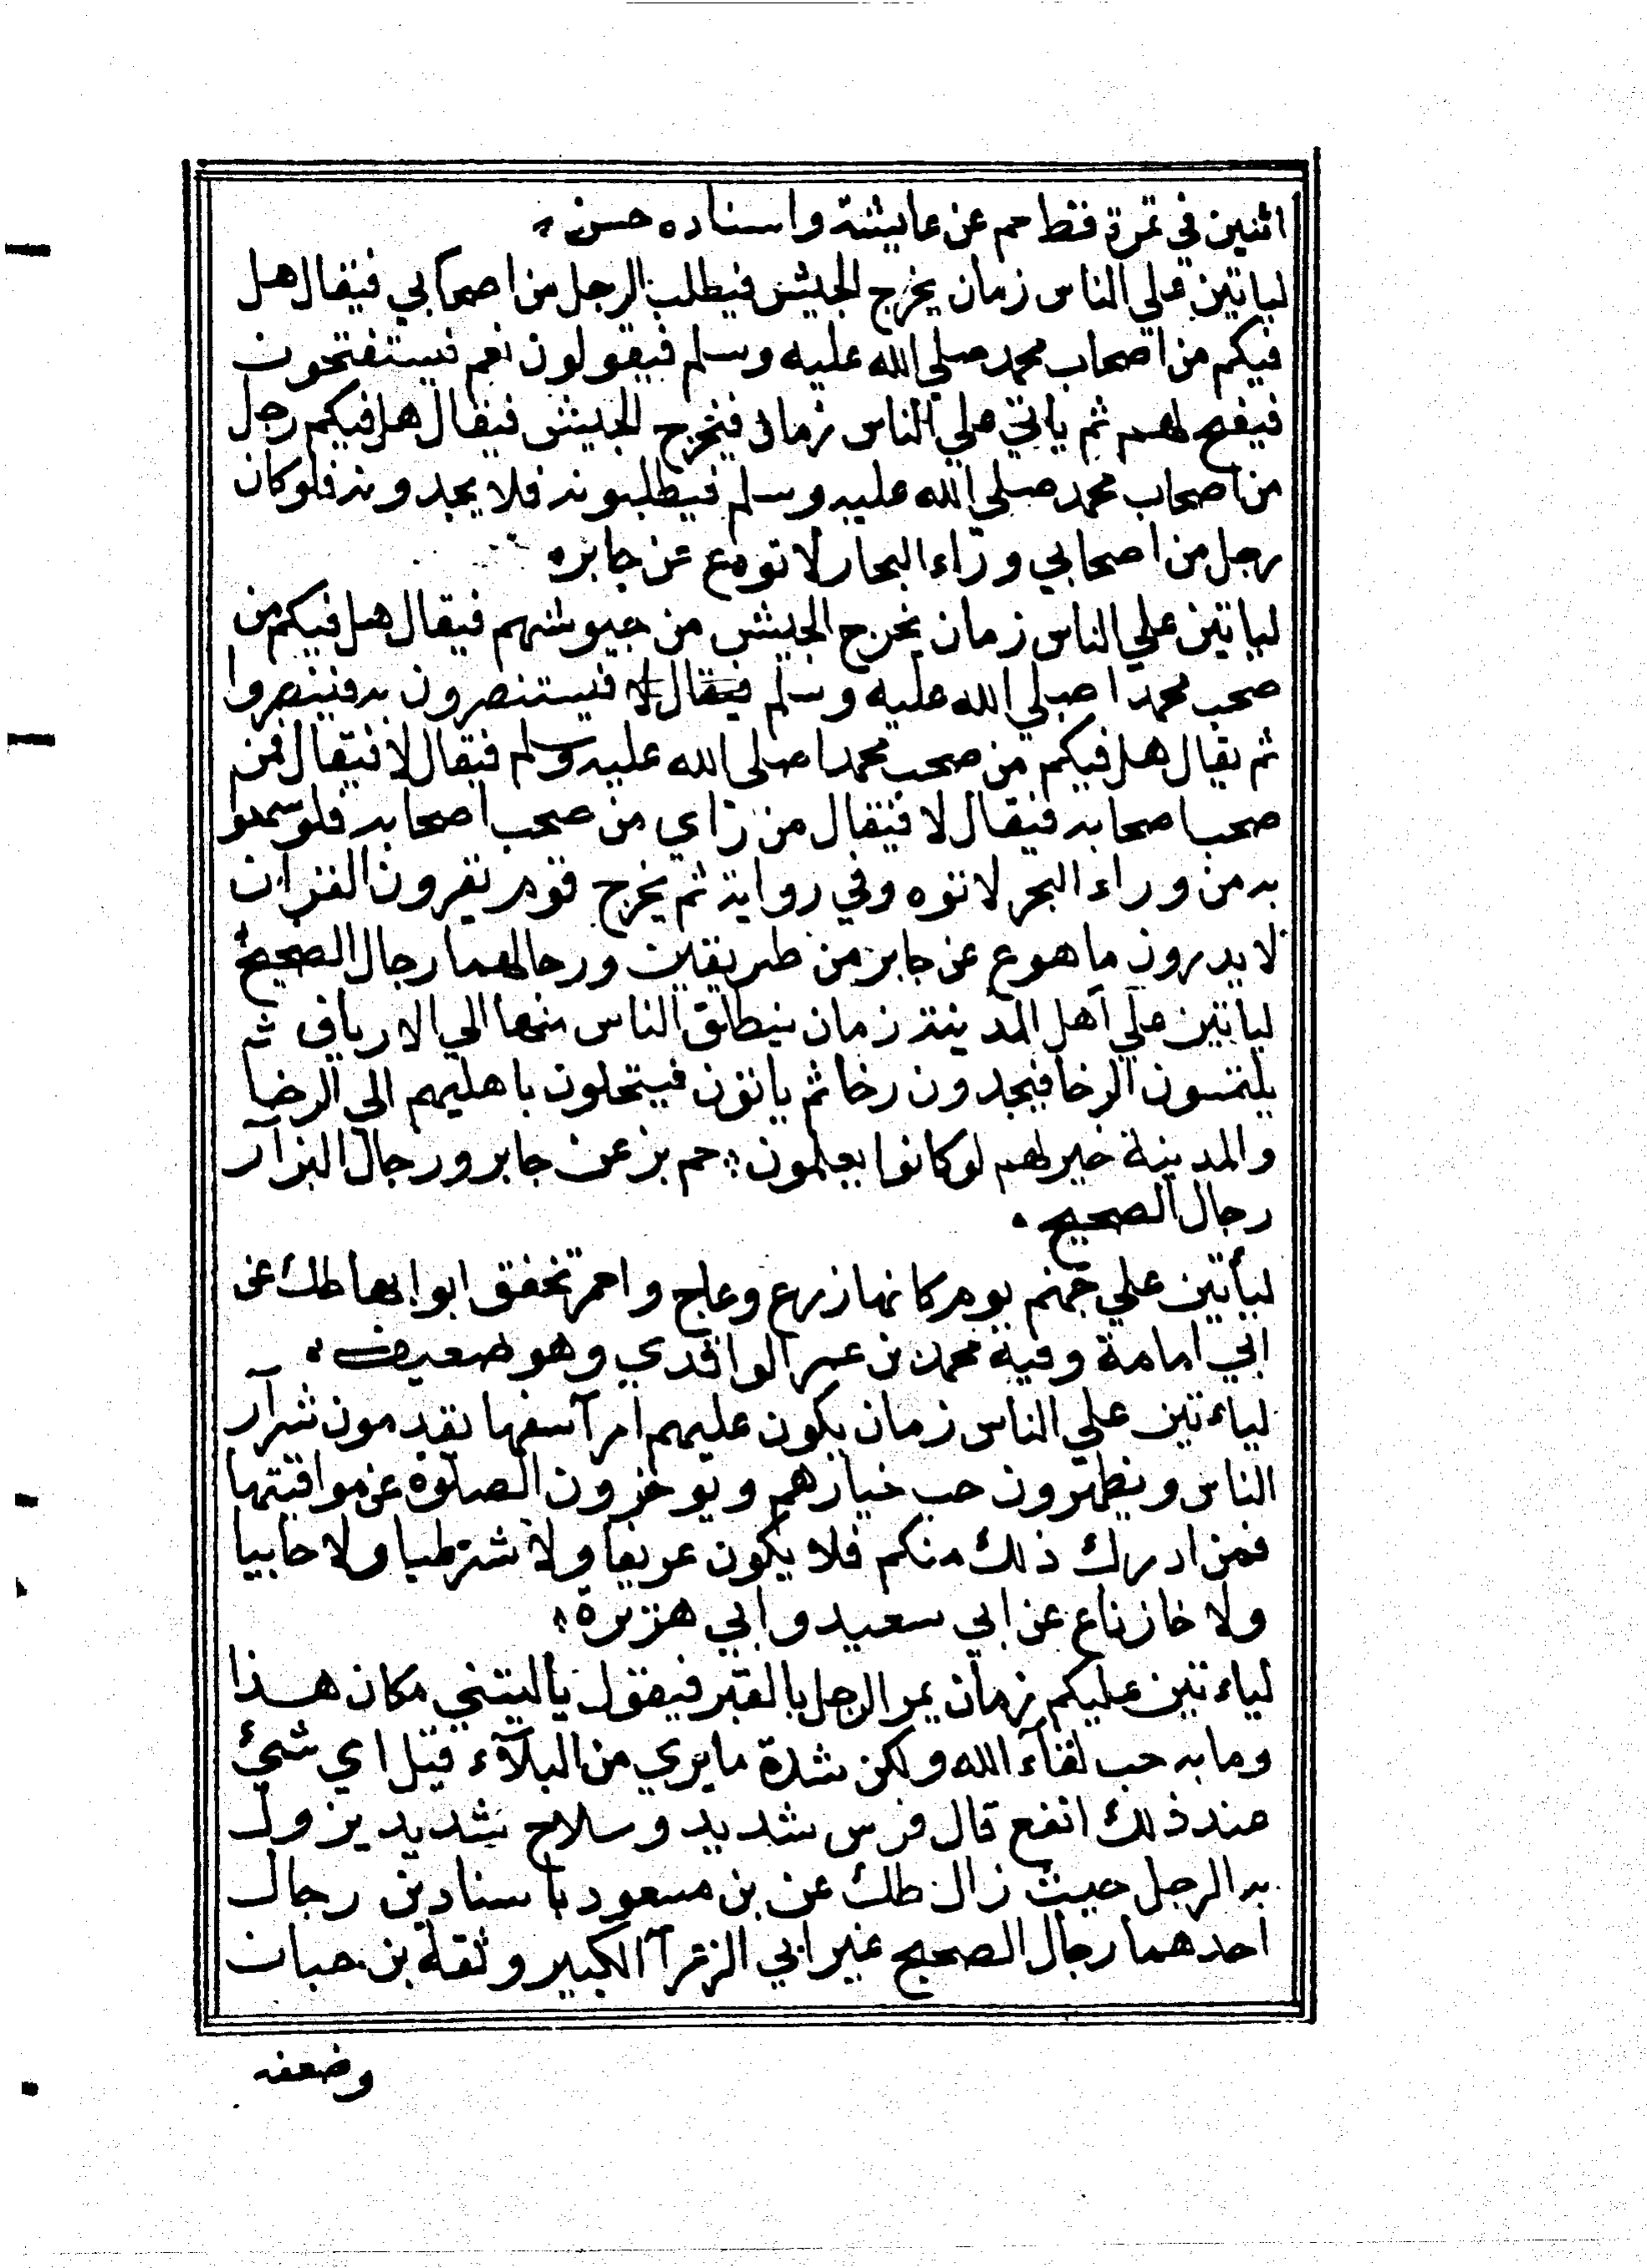 اثنين في تمرة فقط حم عن عايشة واسناده حسن
لياتين علي الناس زمان يخرج الجيش فيطلب الرجل من اصحابي فيقال هل
فيكم من اصحاب محمد صلي الله عليه وسلم فيقولون نعم فيستفتحون
فيفتح لهم ثم ياتي علي الناس زمان فيخرج الجيش فيقال هل فيكم رجل
من اصحاب محمد صلي الله عليه وسلم فيطلبونه فلا يجدونه فلو كان
رجل من اصحابي وراء البحار لاتوه ع عن جابر
لياتين علي الناس زمان يخرج الجيش من جيوشهم فيقال هل فيكم من
صحب محمدا صلي الله عليه وسلم فيقال لا فيستنصرون به فينصروا
ثم يقال هل فيكم من صحب محمدا صلى الله عليه وسلم فيقال لا فيقال فمن
صحب اصحابه فيقال لا فيقال من راي من صحب اصحابه فلو سمعوا
به من وراء البحر لاتوه وفي رواية ثم يخرج قوم يقرون القران
لا يدرون ما هو ع عن جابر من طريقين ورجالهما رجال الصحيح
لياتين علي اهل المدينة زمان ينطلق الناس منها الي الارياف ثم
يلتمسون الرخا فيجدون رخا ثم ياتون فيتحلون باهليهم الي الرخا
والمدينة خير لهم لو كانوا يعلمون حم بز عن جابر ورجال البزار
رجال الصحيح
ليأتين علي جهنم يوم كانها زرع وعاج واحمر تخفق ابوابها طك عن
ابي امامة وفيه محمد بن عمر الواقدي وهو ضعيف
لياءتين علي الناس زمان يكون عليهم امرآ سفها يقدمون شرآر
الناس ويظهرون حب خيارهم ويوخرون الصلوة عن مواقيتها
فمن ادرك ذلك منكم فلا يكون عريفا ولا شرطيا ولا جابيا
ولا خازنا ع عن ابي سعيد وابي هريرة
لياءتين عليكم زمان يمر الرجل بالقبر فيقول ياليتني مكان هذا
وما به حب لقآء الله ولكن شدة ما يري من البلآء قيل اي شيئ
عند ذلك انفع قال فرس شديد وسلاح شديد يزول
به الرجل حيث زال طك عن بن مسعود باسنادين رجال
احدهما رجال الصحيح غير ابي الزعرآ الكبير وثقه بن حبان
وضعفه